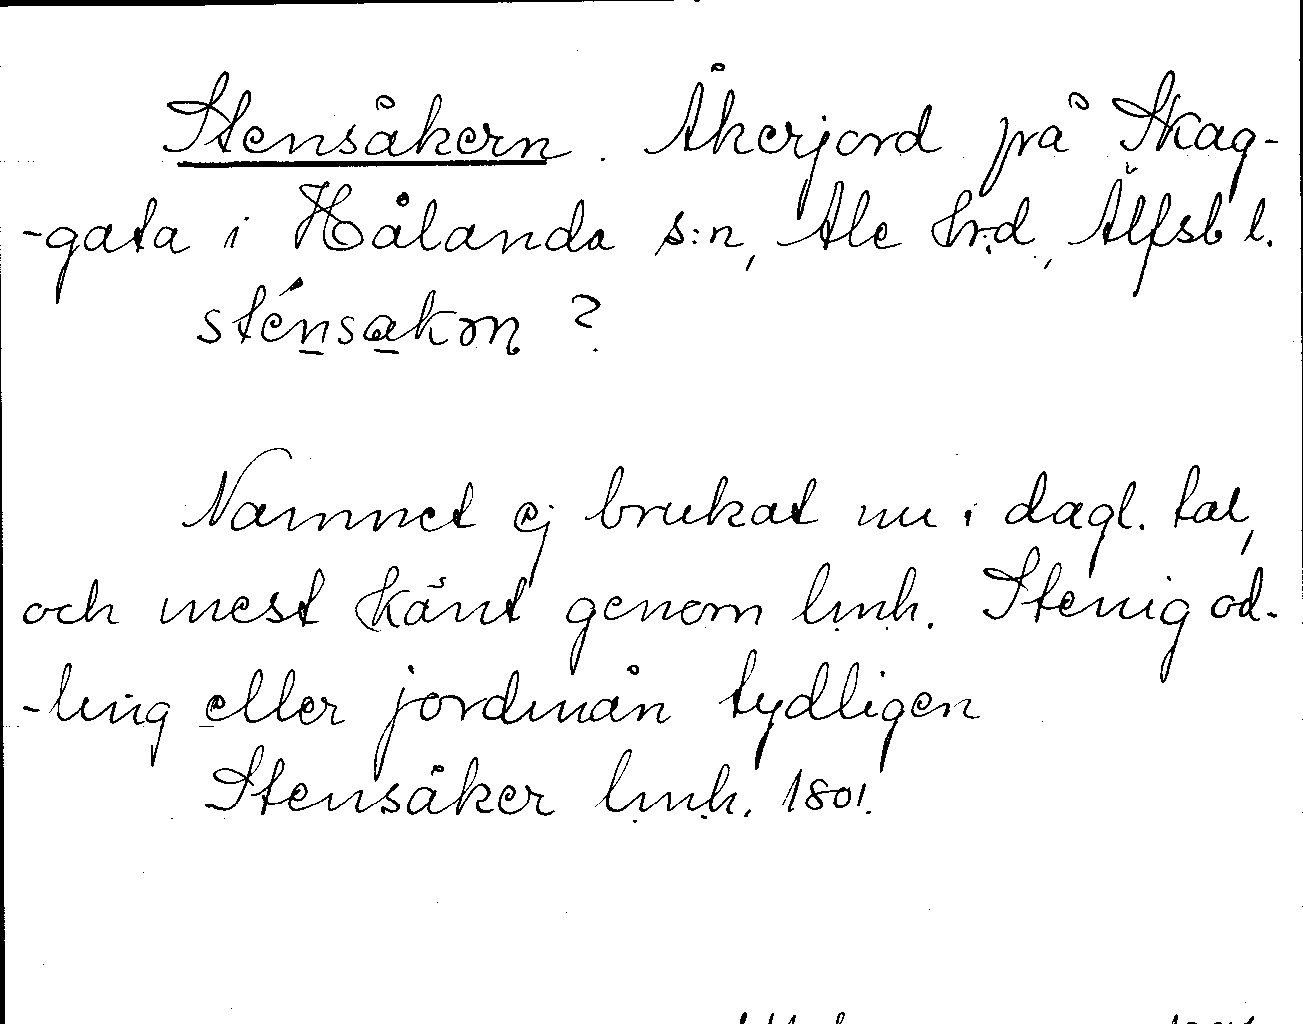 Stensåkern. Åkerjord på Skag-
-gata i Hålanda s:n, Ale hrd, Älfsb l.
sténsakɷn ?
Namnet ej brukat nu i dagl. tal,
och mest känt genom lmh. Stenig od-
-ling eller jordmån tydligen
Stensåker lmh. 1801.